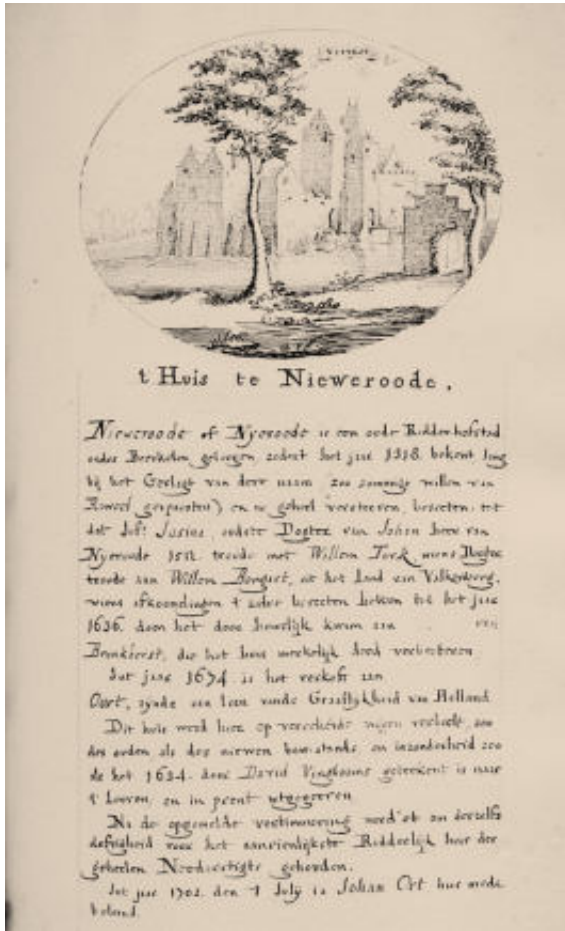 t Huis te Nieweroode.
Nieweroode of Nyeroode is een oude Ridderhofstad
onder Breukelen gelegen, zedert het jaar bekent
bij het van deze naam zoo sommige willen van
en in geheel besceten, tot
dat Joffr Josina, oudste Dogter van Johan heer van
Nyeroode troude met Willem Turk, wiens Dogter
troude aan Willem uit het Land van
wiens t zedert besceten hebben tot het jaar
1636. doen het door houwelijk kwam aan van
Bronkhorst, die het huis merkelijk deed verbeteren
Int jaar 1674 is het verkoft aan
Oort, zynde een leen vande Graaflijkheid van Holland
Dit huis werd hier op verscheide wijzen verbeelt, zoo
des ouden als des niewen en inzonderheid zoo
de het 1634. door David Vingboons getekent is naar
t Leeven, en in prent uytgegeven
Na de opgemelde vertimmering werd et om deszelfs
deftigheid voor het aanzienlijkste Ridderlijk huis der
geheelen gehouden.
Int jaar 1702. den 1 July is Johan Ort hier mede
beleend.